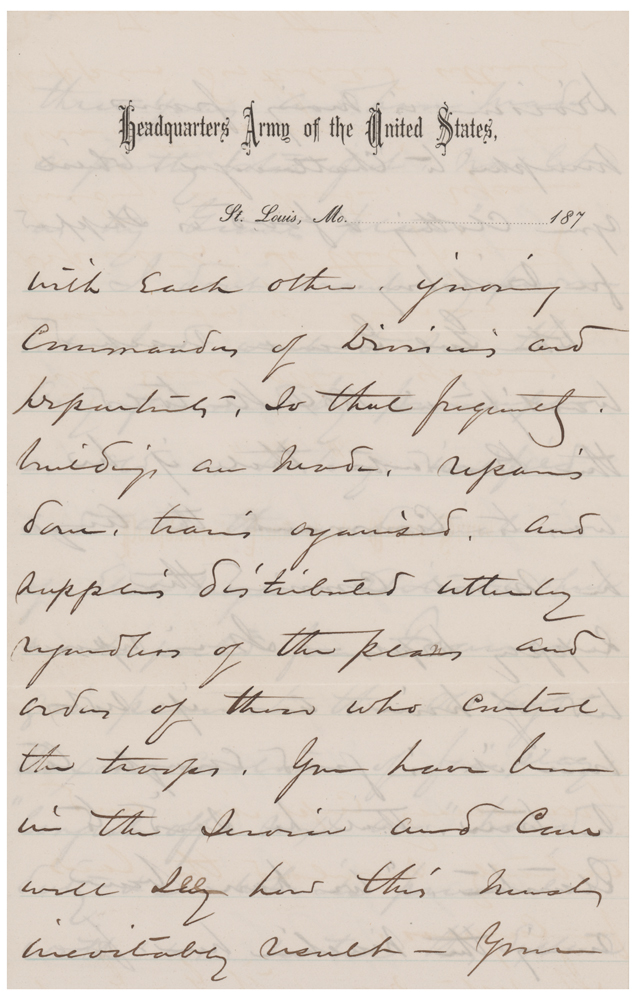 Headquarters Army of the United States,
St. Louis, Mo. 187
with Each other. ignoring
Commanders of Divisions and
Departments, So that frequently.
buildings are made, repairs
done, trains organised, and
supplies distributed utterly
regardless of the plans and
orders of those who control
the troops. You have been
in the Service and Can
well See how this must
inevitably result — Your